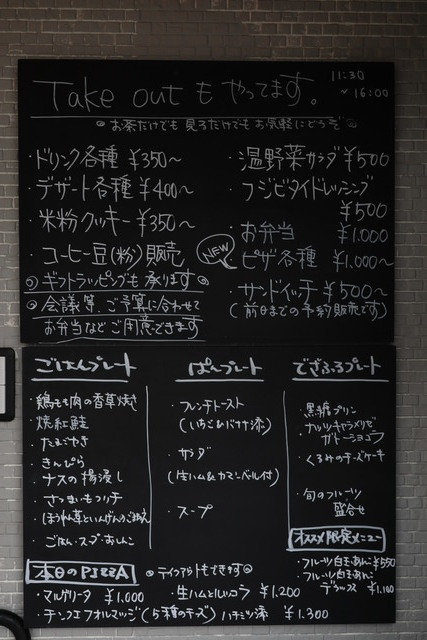 Take out も やってます。
11:30
~ 16:00
お茶だけでも 見るだけでも お気軽にどうぞ
・ドリンク各種 ¥350~
・デザート各種 ¥400~
・米粉クッキー ¥350~
・コーヒー豆(粉)販売
ギフトラッピングも承ります
会議等、ご予算に合わせて
お弁当などご用意できます
・温野菜サラダ ¥500
・フジビタイドレッシング
¥500
・お弁当 ¥1.000
NEW
・ピザ各種 ¥1.000~
・サンドイッチ ¥500~
(前日までの予約販売です)
ごはんプレート
・鶏もも肉の香草焼き
・焼紅鮭
・たまごやき
・きんぴら
・ナスの揚浸し
・さつまいもフリテ
・ほうれん草といんげんのごまあえ
・ごはん・スープ・おしんこ
ぱんプレート
・フレンチトースト
(いちご&バナナ添)
・サラダ
(生ハム&カマンベール付)
・スープ
でざぷるプレート
・黒糖プリン
・ナッツキャラメリゼ
ガトーショコラ
・くるみのチーズケーキ
・旬のフルーツ
盛合せ
オススメ限定メニュー
・フルーツ白玉あんこ ¥550
・フルーツ白玉あんこ
デラックス ¥1.100
本日のPIZZA
テイクアウトもできます
・マルゲリータ ¥1.000
・生ハムとルッコラ ¥1.200
・チンクエフォルマッジ(5種のチーズ) ハチミツ添 ¥1.300